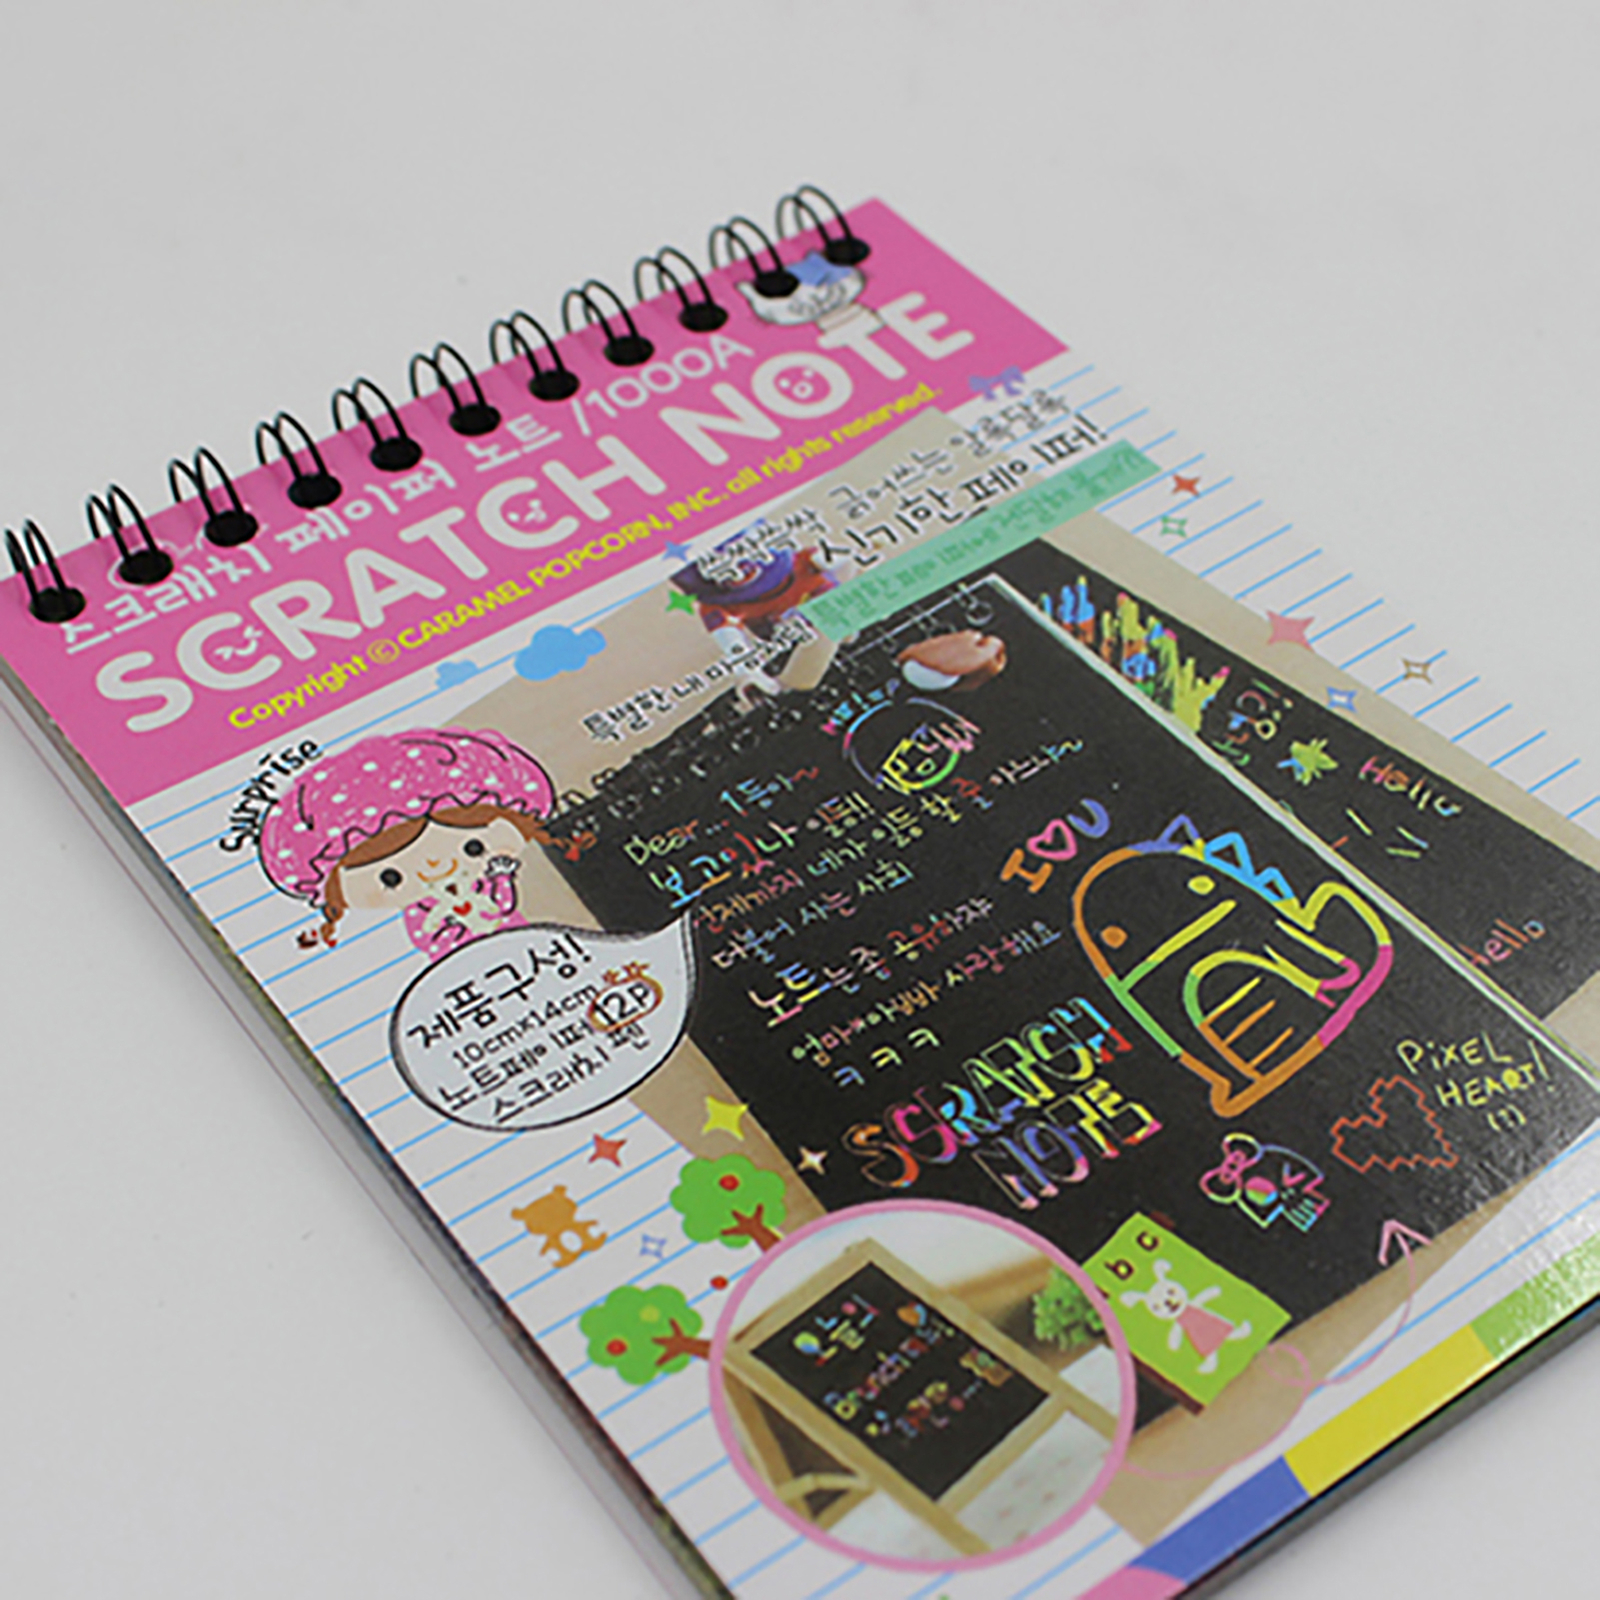 스크래치 페이퍼 노트 /1000A
SCRATCH NOTE
Copyright © CARAMEL POPCORN, INC. all rights reserved.
쓱싹쓱싹 긁어쓰는 알록달록
신기한 페이퍼!
특별한 내 마음
surprise
제품구성!
10cm×14cm
노트페이퍼 12P
스크래치 펜
Dear... 1등이~
보고있나 일등!!
언제까지 네가 일등할 줄 아느냐~
더불어 사는 사회
노트는 좀 공유하쟈
엄마아빠 사랑해요
ㅋㅋㅋ
I U
SCRATCH
NOTE
PiXEL
HEART!
(?)
Hello
hello
b c
오늘의
Brunch